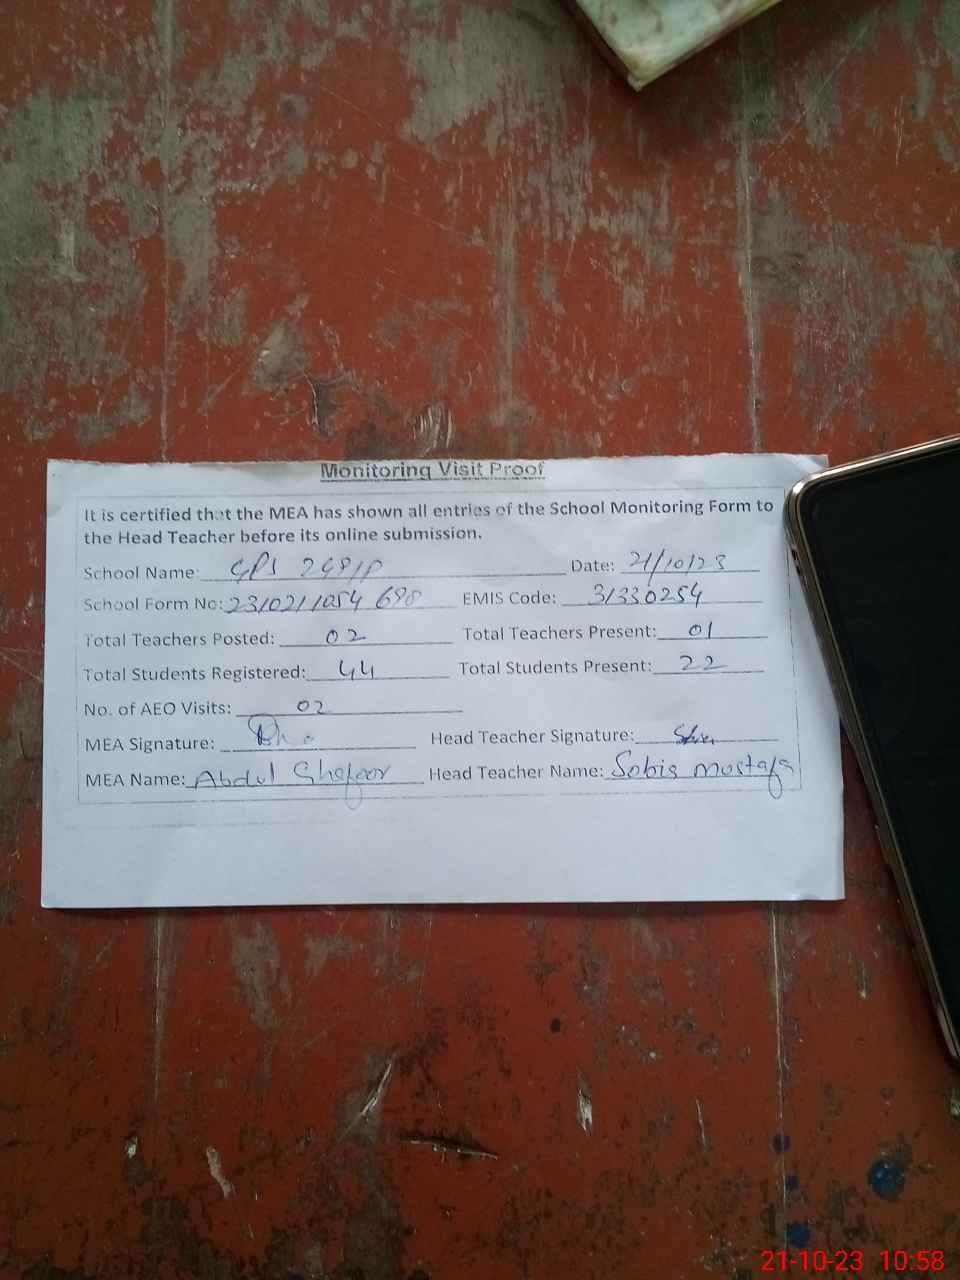 Monitoring Visit Proof
It is certified that the MEA has shown all entries of the School Monitoring Form to
the Head Teacher before its online submission.
School Name: GPS 248/P Date: 21/10/23
School Form No: 2310211054 698 EMIS Code: 31330254
Total Teachers Posted: 02 Total Teachers Present: 01
Total Students Registered: 44 Total Students Present: 22
No. of AEO Visits: 02
MEA Signature: Head Teacher Signature:
MEA Name: Abdul Ghafoor Head Teacher Name: Sobia mustafa
21-10-23 10:58